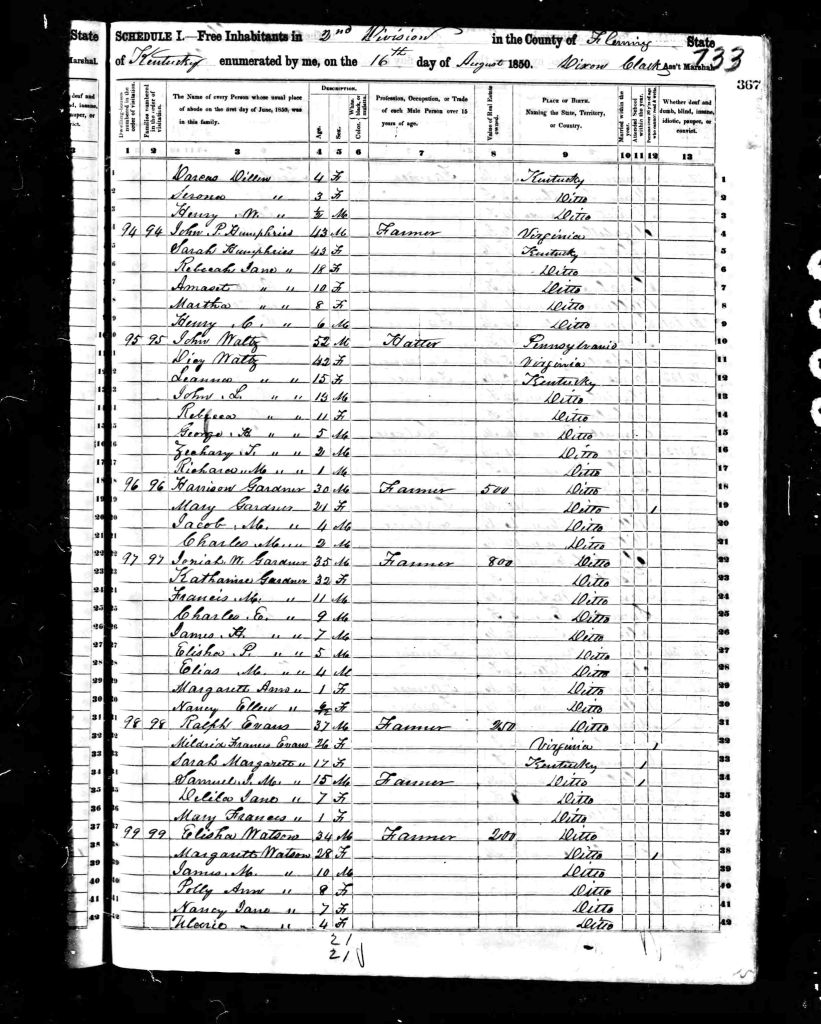 State
SCHEDULE I.—Free Inhabitants in 2nd Division in the County of Fleming State
of Kentucky enumerated by me, on the 16th day of August 1850. Dixon Clark Ass't Marshal.
733
367
Marshal.
Dwelling-houses numbered in the order of visitation.
Families numbered in the order of visitation.
The Name of every Person whose usual place of abode on the first day of June, 1850, was in this family.
DESCRIPTION.
Age.
Sex.
Color, White, black, or mulatto.
Profession, Occupation, or Trade of each Male Person over 15 years of age.
Value of Real Estate owned.
PLACE OF BIRTH. Naming the State, Territory, or Country.
Married within the year.
Attended School within the year.
Persons over 20 y'rs of age who cannot read & write.
Whether deaf and dumb, blind, insane, idiotic, pauper, or convict.
1 2 3 4 5 6 7 8 9 10 11 12 13
1 Darcas Dillin 4 F Kentucky 1
2 " 3 F Ditto 2
3 Henry W. " M Ditto 3
4 94 94 John P. Humphries 43 M Farmer Virginia 4
5 Sarah Humphries 43 F Kentucky 5
6 Rebecah Jane " 18 F Ditto 6
7 " " 10 F Ditto 7
8 Martha " " 8 F Ditto 8
9 Henry C. " 6 M Ditto 9
10 95 95 John Waltz 52 M Hatter Pennsylvania 10
11 Dicy Waltz 42 F Virginia 11
12 Leanna " " 15 F Kentucky 12
13 John L. " " 13 M Ditto 13
14 Rebecca " " 11 F Ditto 14
15 George H " " 5 M Ditto 15
16 Zechary T. " " 2 M Ditto 16
17 Richard M " " 1 M Ditto 17
18 96 96 Harrison Gardner 30 M Farmer 500 Ditto 18
19 Mary Gardner 21 F Ditto 1 19
20 Jacob M. " 4 M Ditto 20
21 Charles M. " " 2 M Ditto 21
22 97 97 W. Gardner 35 M Farmer 800 Ditto 22
23 Katharine Gardner 32 F Ditto 23
24 Francis M. " 11 M Ditto 24
25 Charles E. " " 9 M Ditto 25
26 James H. " " 7 M Ditto 26
27 Elisha P. " " 5 M Ditto 27
28 Elias M. " " 4 M Ditto 28
29 Margarett Ann " 1 F Ditto 29
30 Nancy Ellen " F Ditto 30
31 98 98 Ralph Evans 37 M Farmer 250 Ditto 31
32 Francis Evans 26 F Virginia 1 32
33 Sarah Margarett " 17 F Kentucky 1 33
34 Samuel J. M. " 15 M Farmer Ditto 1 34
35 Delila Jane " 7 F Ditto 35
36 Mary Francis " 1 F Ditto 36
37 99 99 Elisha Watson 34 M Farmer 200 Ditto 37
38 Margarett Watson 28 F Ditto 1 38
39 James M. " 10 M Ditto 39
40 Polly Ann " 8 F Ditto 40
41 Nancy Jane " 7 F Ditto 41
42 " " 4 F Ditto 42
21
21